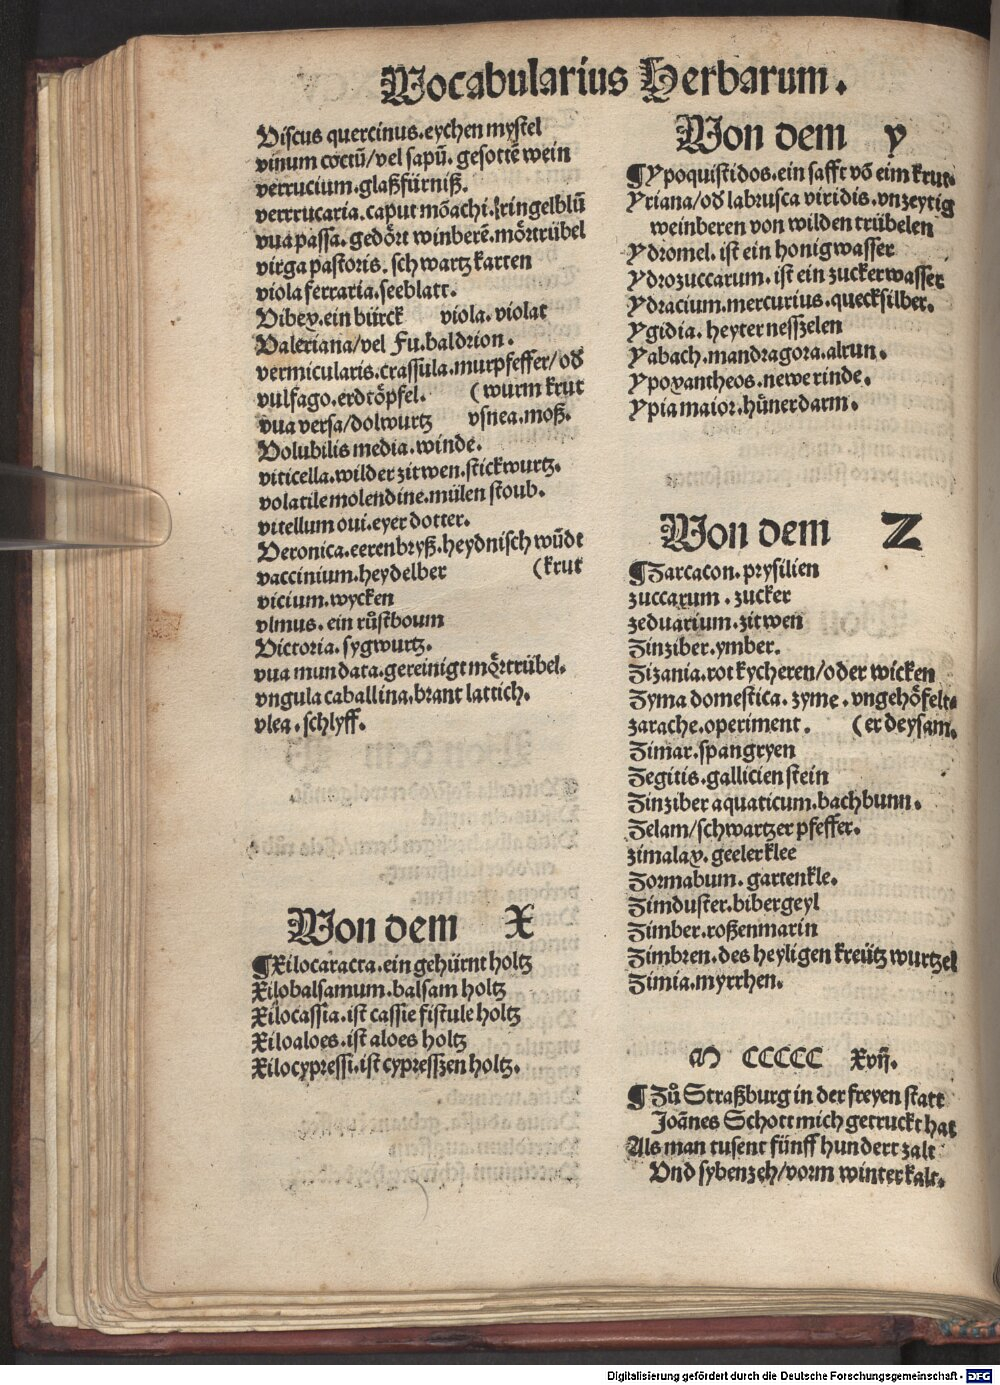 Vocabularius Herbarum.
Viscus quercinus. eychen mystel
vinum coctū/vel sapū. gesottē wein
verrucium. glaßfürniß.
verrrucaria. caput mōachi. kringelblū
vua passa. gedört winberē. mörtrübel
virga pastoris. schwartz karten
viola ferraria. seeblatt.
Vibex. ein bürck viola. violat
Valeriana/vel Fu. baldrion.
vermicularis. crassula. murpfeffer/oď
vulfago. erdtöpfel. (wurm krut
vua versa/dolwurtz vsnea. moß.
Volubilis media. winde.
viticella. wilder zitwen. stickwurtz.
volatile molendine. mülen stoub.
vitellum oui. eyer dotter.
Veronica. eerenbryß. heydnisch wūdt
vaccinium. heydelber (krut
vicium. wycken
vlmus. ein růstboum
Victoria. sygwurtz.
vua mundata. gereinigt mörtrübel.
vngula caballina. brant lattich.
vlea. schlyff.
Von dem X
¶Xilocaracta. ein gehürnt holtz
Xilobalsamum. balsam holtz
Xilocassia. ist cassie fistule holtz
Xiloaloes. ist aloes holtz
Xilocypressi. ist cypresszen holtz.
Von dem y
¶Ypoquistidos. ein safft vō eim krut.
Yriana/oď labrusca viridis. vnzeytig
weinberen von wilden trübelen
Ydromel. ist ein honig wasser
Ydrozuccarum. ist ein zucker wasser
Ydracium. mercurius. quecksilber.
Ygidia. heyter nesszelen
Yabach. mandragora. alrun.
Ypoxantheos. newe rinde.
Ypia maior. hünerdarm.
Von dem Z
¶Zarcacon. prysilien
zuccarum. zucker
zeduarium. zitwen
Zinziber. ymber.
Zizania. rot kycheren/oder wicken
Zyma domestica. zyme. vngehöfelt-
zarache. operiment. (er deysam.
Zimar. spangryen
Zegitis. gallicien stein
Zinziber aquaticum. bachbunn.
Zelam/schwartzer pfeffer.
zimalax. geeler klee
Zormabum. gartenkle.
Zimduster. bibergeyl
Zimber. roßenmarin
Zimbren. des heyligen kreütz wurtzel
Zimia. myrrhen.
M CCCCC Xvij.
¶Zů Straßburg in der freyen statt
Joānes Schott mich getruckt hat
Als man tusent fünff hundert zalt
Vnd sybenzeh/vorm winter kalt.
Digitalisierung gefördert durch die Deutsche Forschungsgemeinschaft - DFG